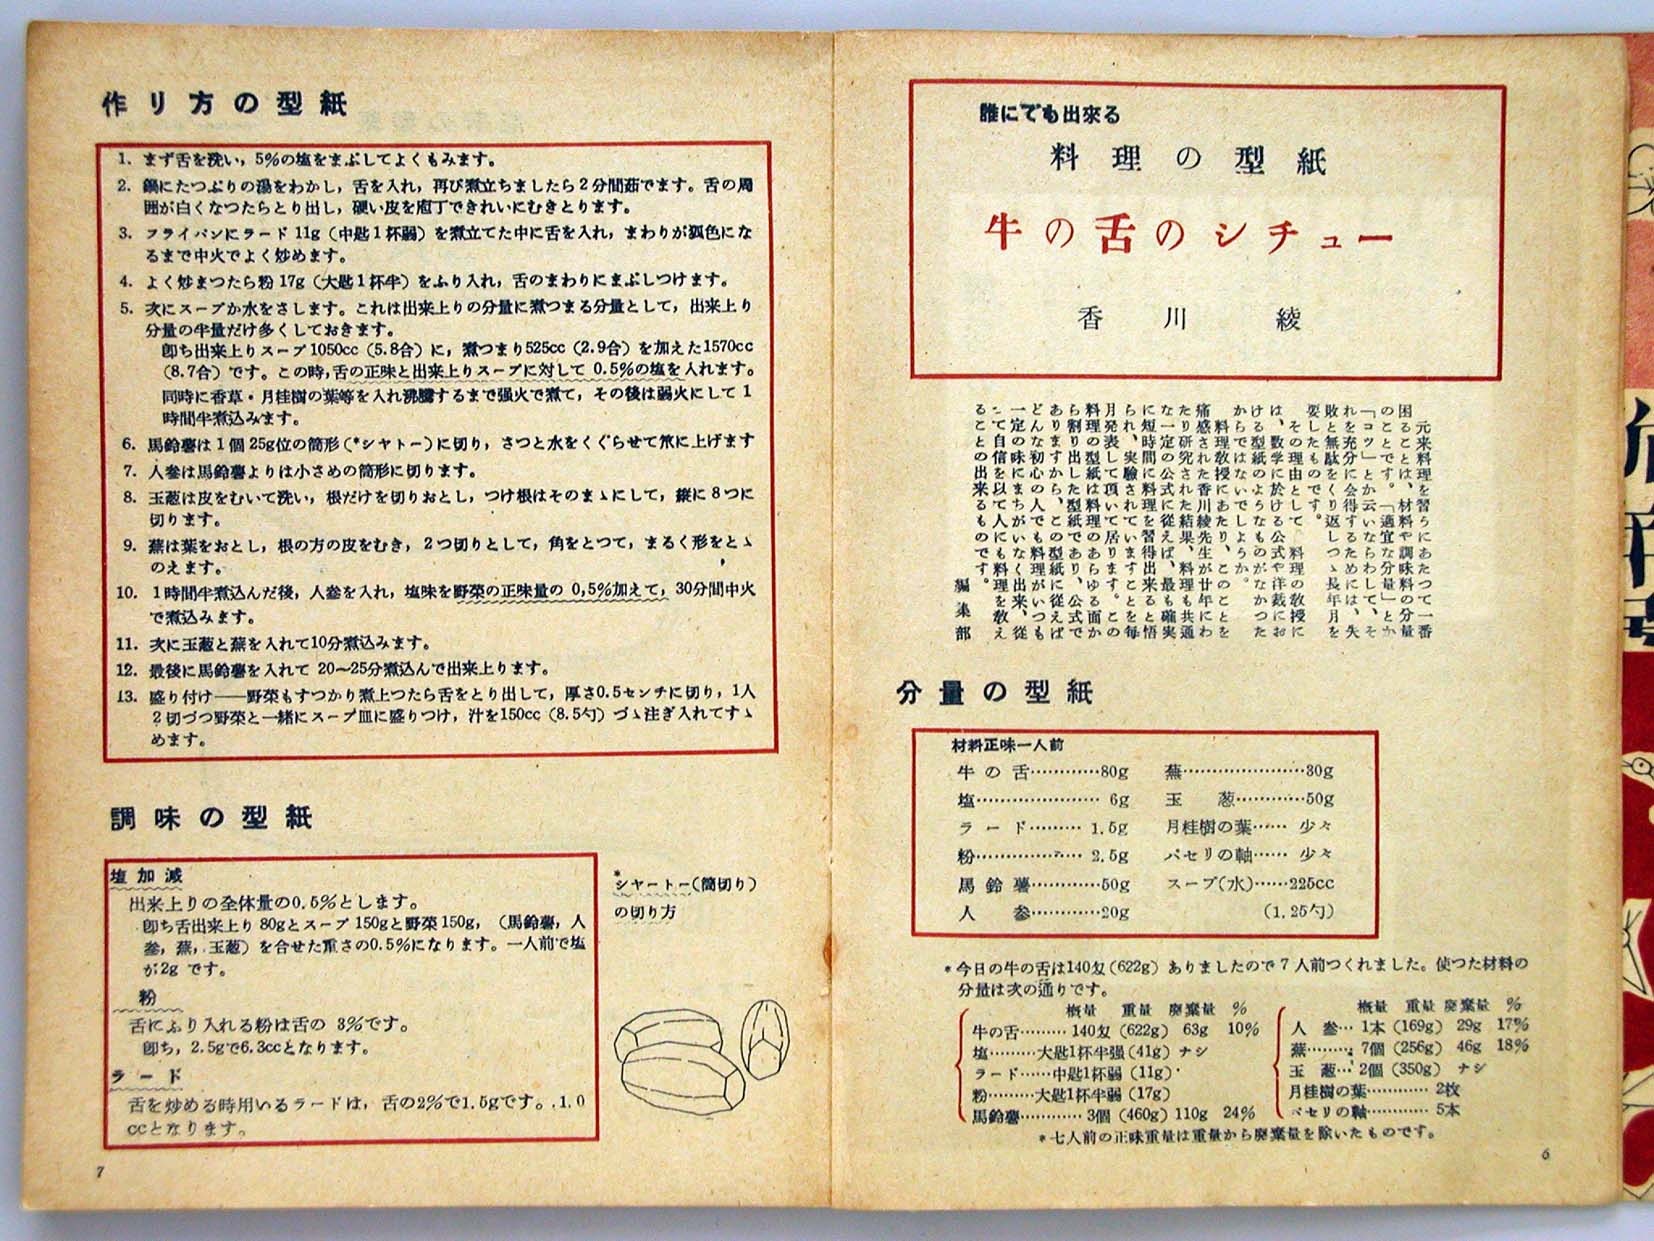 誰にでも出來る
料理の型紙
牛の舌のシチュー
香川　綾
元来料理を習うにあたつて一番
困ることは、材料や調味料の分量
のことです。「適宜な分量」とか
「コツ」とか云いならわして、そ
れを充分に会得するためには、失
敗と無駄をくり返しつゝ長年月を
要したものです。
その理由として、料理の敎授に
は、数学に於ける公式や洋裁にお
ける型紙のようなものがなかつた
からではないでしようか。
料理敎授にあたり、このことを
痛感された香川綾先生が廿年にわ
たり研究された結果、料理も共通
な一定の公式に從えば、最も確実
に短時間に料理を習得出來ると悟
られ、実驗されていますことを毎
月発表して頂いて居ります。この
料理の型紙は料理のあらゆる面か
ら割り出した型紙であり、公式で
ありますから、この型紙に從えば
どんな初心の人でも料理がいつも
一定の味にまちがいなく出来、從
つて自信を以て人にも料理を敎え
ることの出來るものです。
編集部
分量の型紙
材料正味一人前
牛の舌…………80g　蕪…………………30g
塩………………… 6g　玉　葱…………50g
ラード……… 1.5g　月桂樹の葉…… 少々
粉……………… 2.5g　パセリの軸…… 少々
馬鈴薯…………50g　スープ(水)……225cc
人　参…………20g　(1.25勺)
*今日の牛の舌は140匁(622g) ありましたので7人前つくれました。使つた材料の
分量は次の通りです。
概量　重量　廃棄量　%
牛の舌……… 140匁 (622g)　63g　10%
塩………大匙1杯半强 (41g) ナシ
ラード……中匙1杯弱 (11g)
粉………大匙1杯半弱 (17g)
馬鈴薯…………… 3個 (460g) 110g　24%
概量　重量　廃棄量　%
人　参… 1本 (169g)　29g　17%
蕪……… 7個 (256g)　46g　18%
玉　葱… 2個 (350g)　ナシ
月桂樹の葉………… 2枚
パセリの軸………… 5本
*七人前の正味重量は重量から廃棄量を除いたものです。
6
作り方の型紙
1. まず舌を洗い，5%の塩をまぶしてよくもみます。
2. 鍋にたつぷりの湯をわかし，舌を入れ，再び煮立ちましたら2分間茹でます。舌の周
囲が白くなつたらとり出し，硬い皮を庖丁できれいにむきとります。
3. フライパンにラード 11g (中匙1杯弱) を煮立てた中に舌を入れ，まわりが狐色にな
るまで中火でよく炒めます。
4. よく炒まつたら粉 17g (大匙1杯半) をふり入れ，舌のまわりにまぶしつけます。
5. 次にスープか水をさします。これは出来上りの分量に煮つまる分量として，出来上り
分量の半量だけ多くしておきます。
卽ち出来上りスープ1050cc (5.8合) に，煮つまり525cc (2.9合) を加えた1570cc
(8.7合) です。この時，舌の正味と出来上りスープに対して 0.5%の塩を入れます。
同時に香草・月桂樹の葉等を入れ沸騰するまで强火で煮て，その後は弱火にして1
時間半煮込みます。
6. 馬鈴薯は1個 25g位の筒形 (*シャトー) に切り，さつと水をくぐらせて笊に上げます
7. 人参は馬鈴薯よりは小さめの筒形に切ります。
8. 玉葱は皮をむいて洗い，根だけを切りおとし，つけ根はそのまゝにして，縦に8つに
切ります。
9. 蕪は葉をおとし，根の方の皮をむき，2つ切りとして，角をとつて，まるく形をとゝ
のえます。
10. 1時間半煮込んだ後，人参を入れ，塩味を野菜の正味量の 0,5%加えて，30分間中火
で煮込みます。
11. 次に玉葱と蕪を入れて10分煮込みます。
12. 最後に馬鈴薯を入れて 20〜25分煮込んで出来上ります。
13. 盛り付け――野菜もすつかり煮上つたら舌をとり出して，厚さ0.5センチに切り，1人
2切づつ野菜と一緒にスープ皿に盛りつけ，汁を150cc (8.5勺) づゝ注ぎ入れてすゝ
めます。
調味の型紙
塩加減
出来上りの全体量の0.5%とします。
卽ち舌出来上り 80gとスープ 150gと野菜 150g，(馬鈴薯，人
参，蕪，玉葱) を合せた重さの0.5%になります。一人前で塩
が2g です。
粉
舌にふり入れる粉は舌の 3%です。
卽ち，2.5gで6.3ccとなります。
ラード
舌を炒める時用いるラードは，舌の2%で1.5gです。1.0
ccとなります。
*シャートー(筒切り)
の切り方
7